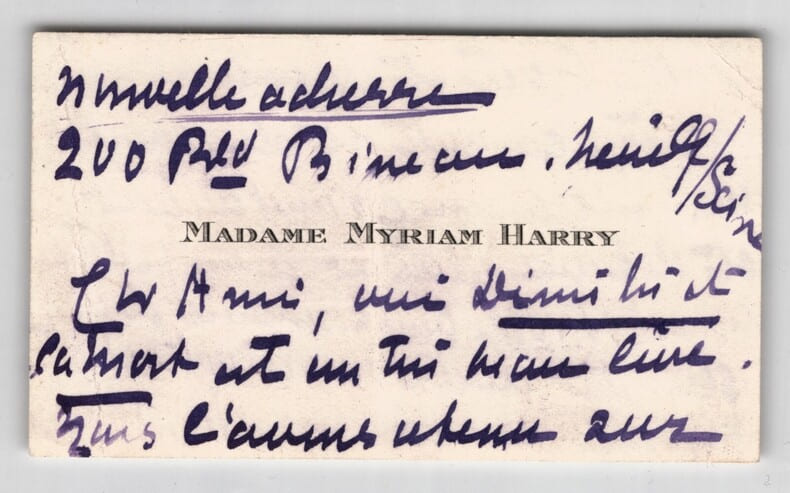 Nouvelle adresse
200 Bld Bineau. Neuilly/Seine
MADAME MYRIAM HARRY
Cher Ami, oui Dimitri et
la mort est un très beau livre.
Nous l'avons retenu aux